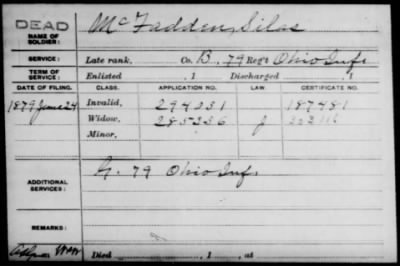 DEAD
NAME OF SOLDIER: McFadden, Silas
SERVICE: Late rank, Co. B, 79 Reg't Ohio Inf.
TERM OF SERVICE: Enlisted , 1 Discharged , 1
DATE OF FILING. CLASS. APPLICATION NO. LAW. CERTIFICATE NO.
1879 June 24 Invalid, 294031 187481
Widow, 285336
Minor,
ADDITIONAL SERVICES: G. 79 Ohio Inf.
REMARKS:
Died , 1 , at